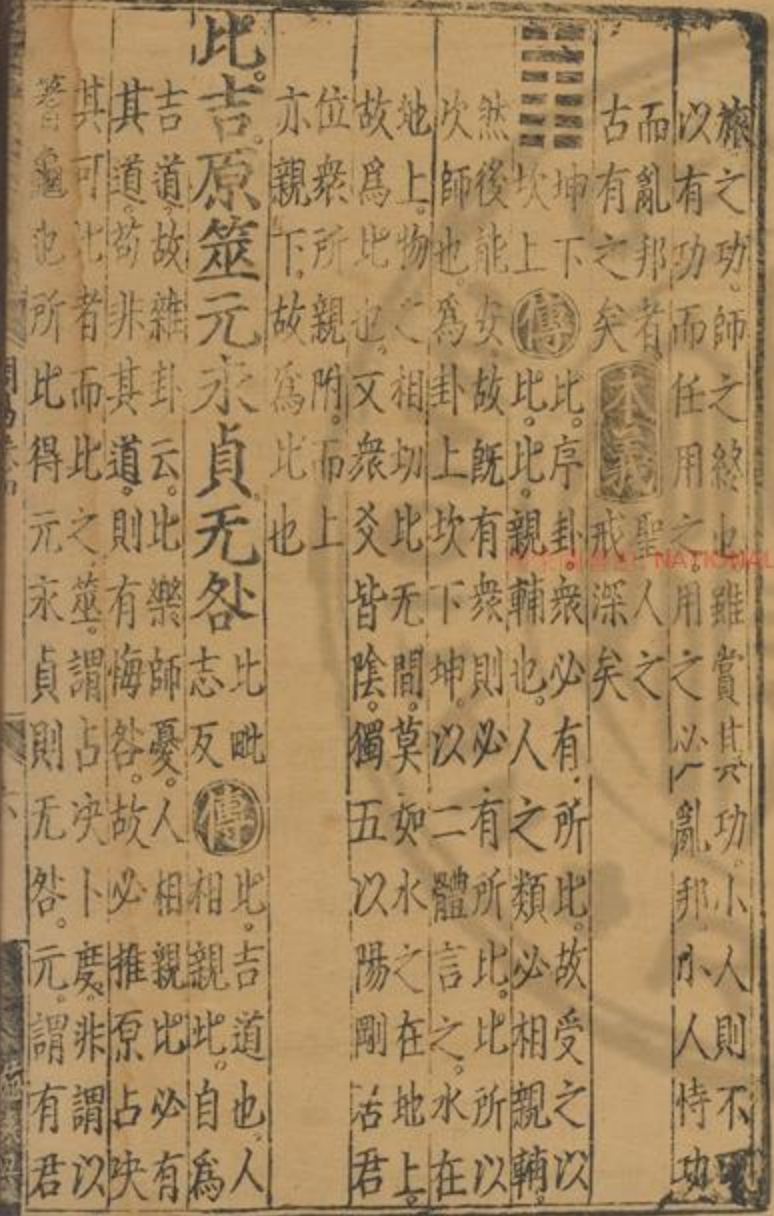 旅之功。師之終也雖賞其功。小人則不
以有功而任用之。用之必亂邦。小人恃功
而亂邦者。
古有之矣
本義
聖人之
戒深矣
坤下
坎上
傳
比。序卦。衆必有所比。故受之以
比。比。親輔也。人之類必相親輔。
然後能安。故既有衆則必有所比。比所以
次師也。爲卦上坎下坤。以二體言之。水在
地上。物之相切比无間。莫如水之在地上。
故爲比也。又衆爻皆陰。獨五以陽剛居君
位衆所親附。而上
亦親下。故爲比也
比。吉。原筮元永貞无咎
比毗
志反
傳
比。吉道也。人
相親比。自爲
吉道。故雜卦云。比樂師憂。人相親比必有
其道。苟非其道。則有悔咎。故必推原占决
其可比者而比之。筮。謂占决卜度。非謂以
蓍龜也所比得元永貞則无咎。元。謂有君
NATIONAL